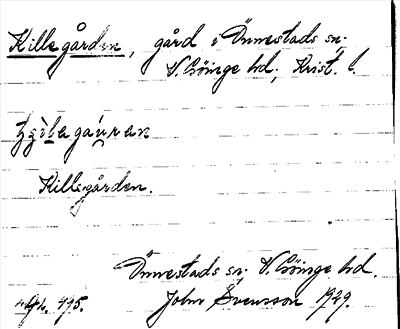 Killegården, gård i Önnestads sn.
V. Göinge hd, Krist. l.
Killegården.
Önnestads sn V. Göinge hd.
John Svensson 1929.